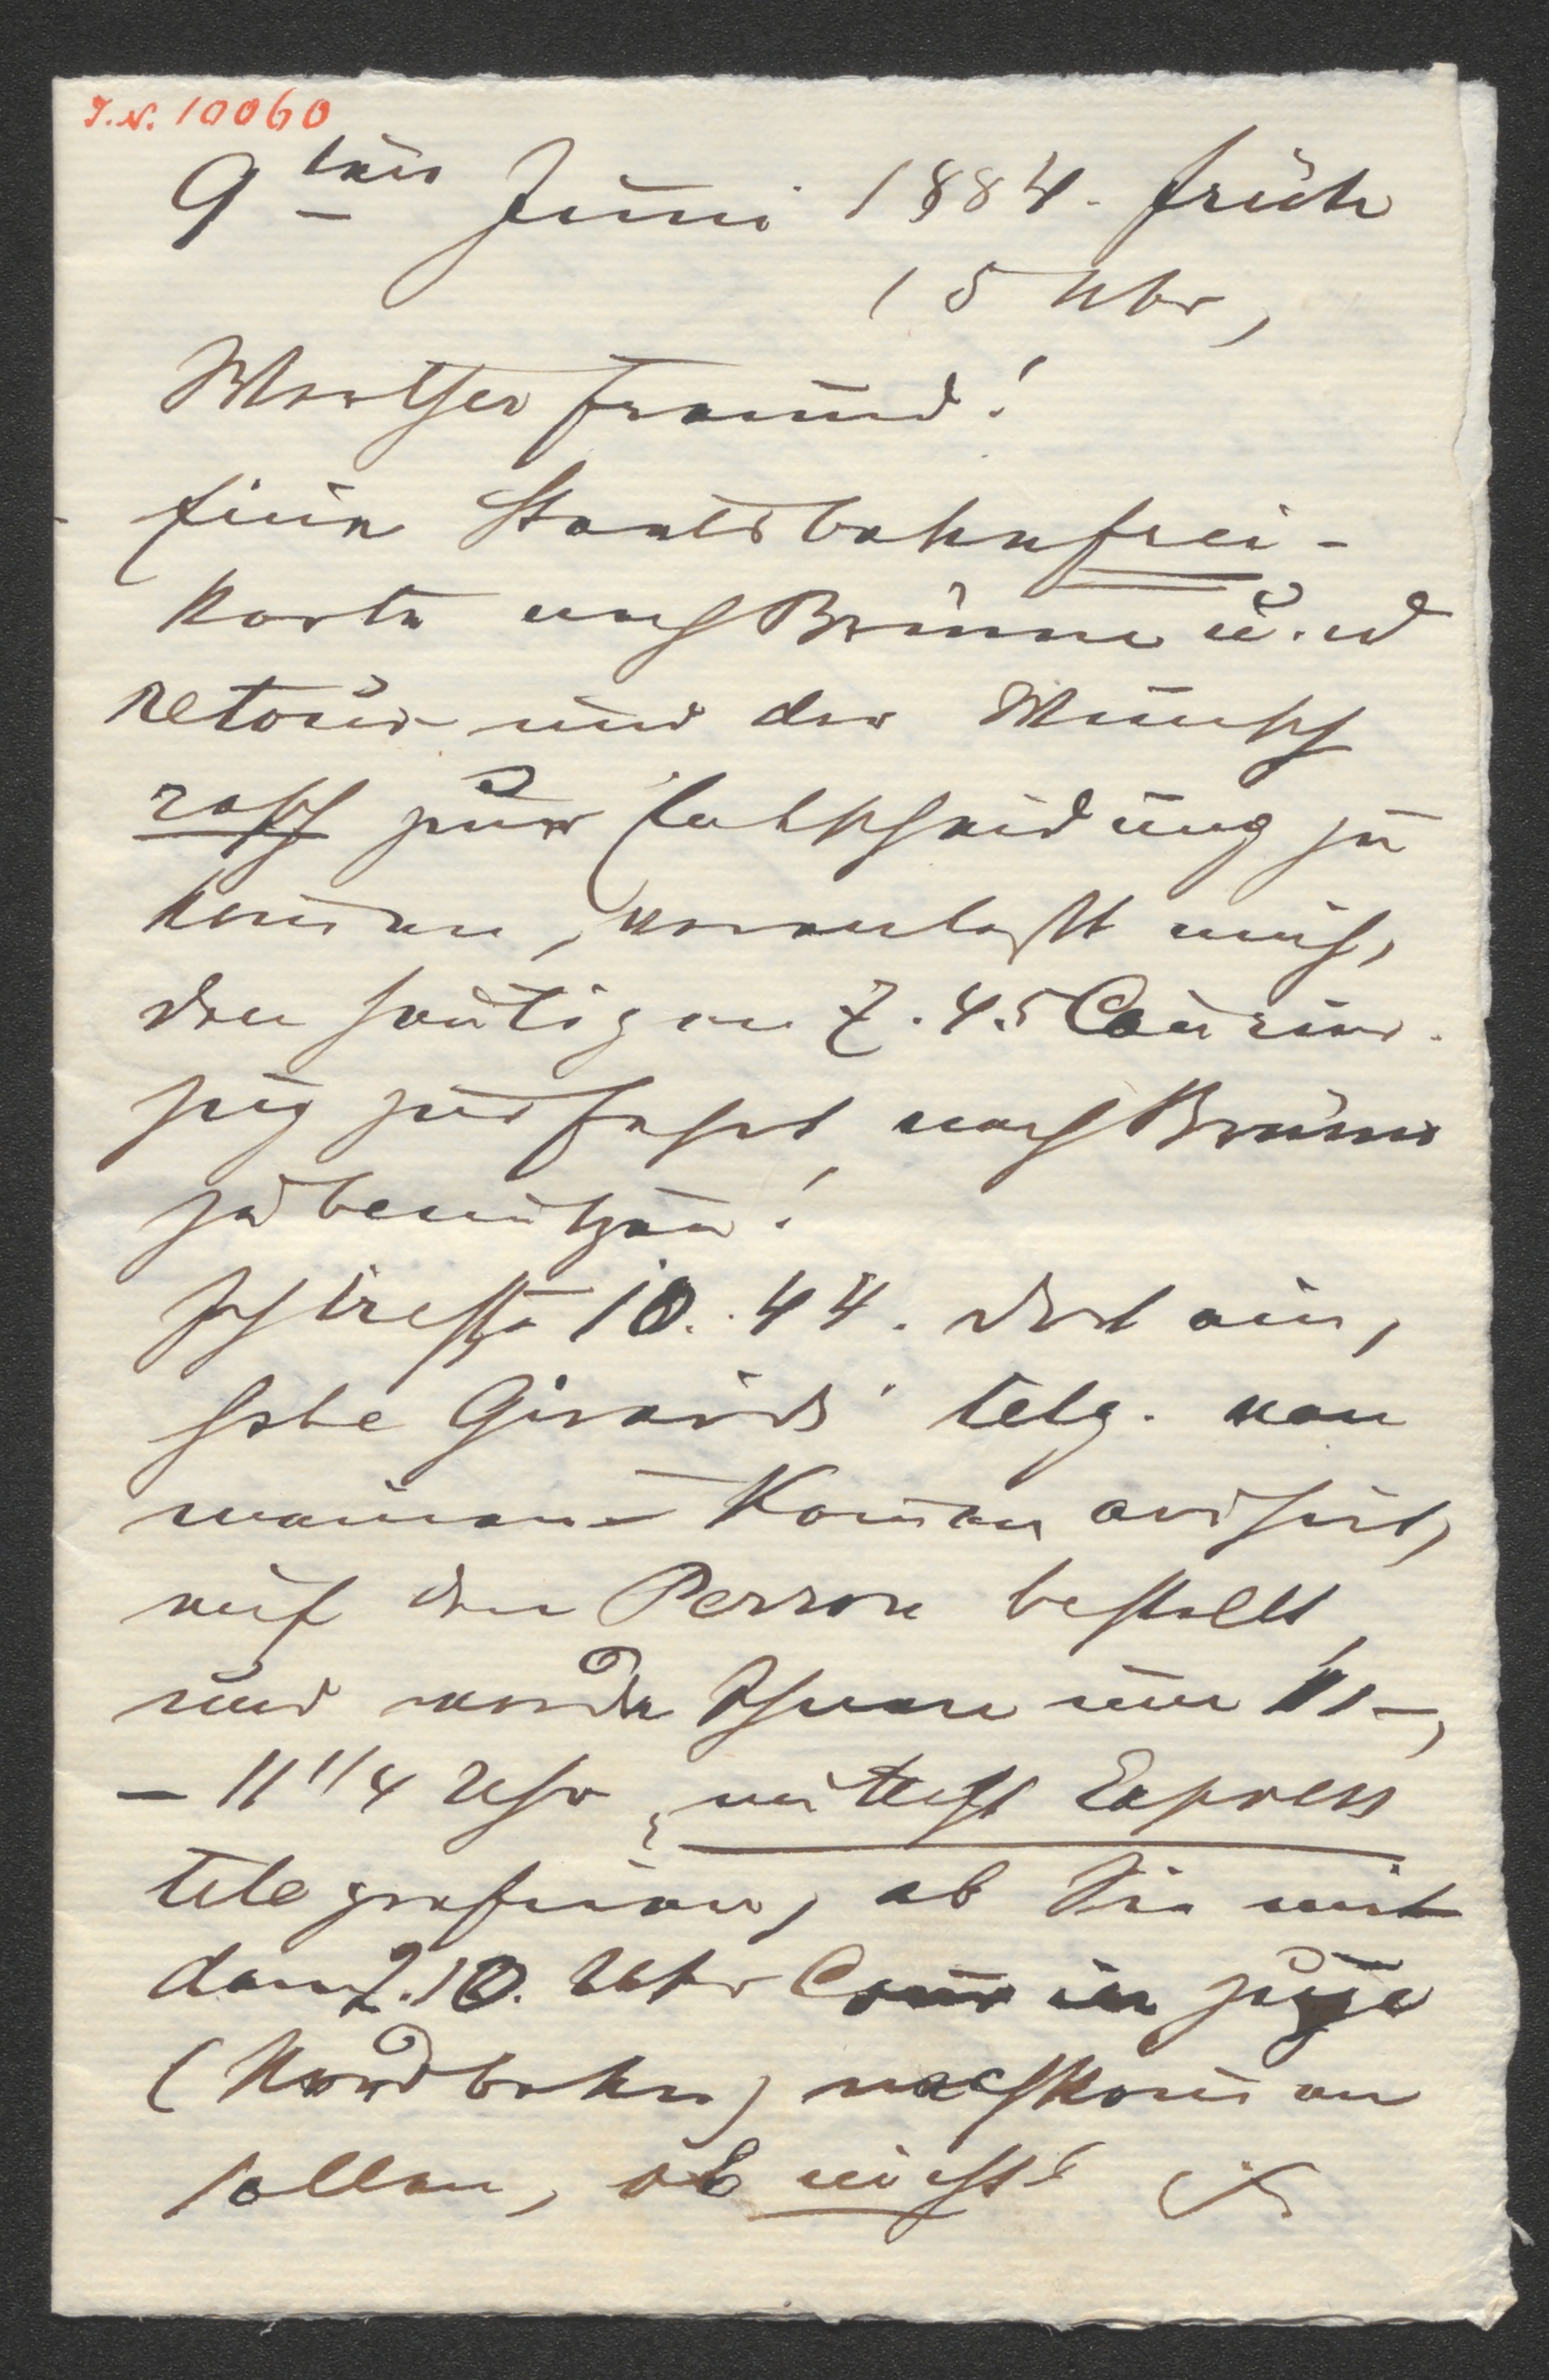 J.N. 10060
9ten Juni 1884. früh
15 Uhr,
Werther Freund!
Eine Staatsbahnfrei-
karte nach Brünn u.
retour und der Wunsch
rasch zur Entscheidung zu
kommen, veranlaßt mich,
den heutigen 7.45 Courier-
zug zur Fahrt nach Brünn
zu benützen!
Ich treffe 10.44. dort ein,
habe Girardi telg. von
meinem Kommen avisirt,
auf den Perron bestellt
und werde Ihnen um 11 –
– 11 1/4 Uhr mittelst Express
telegrafiren, ob Sie mit
dem 2.10. Uhr Courierzuge
(Nordbahn) nachkommen
sollen, ob nicht!